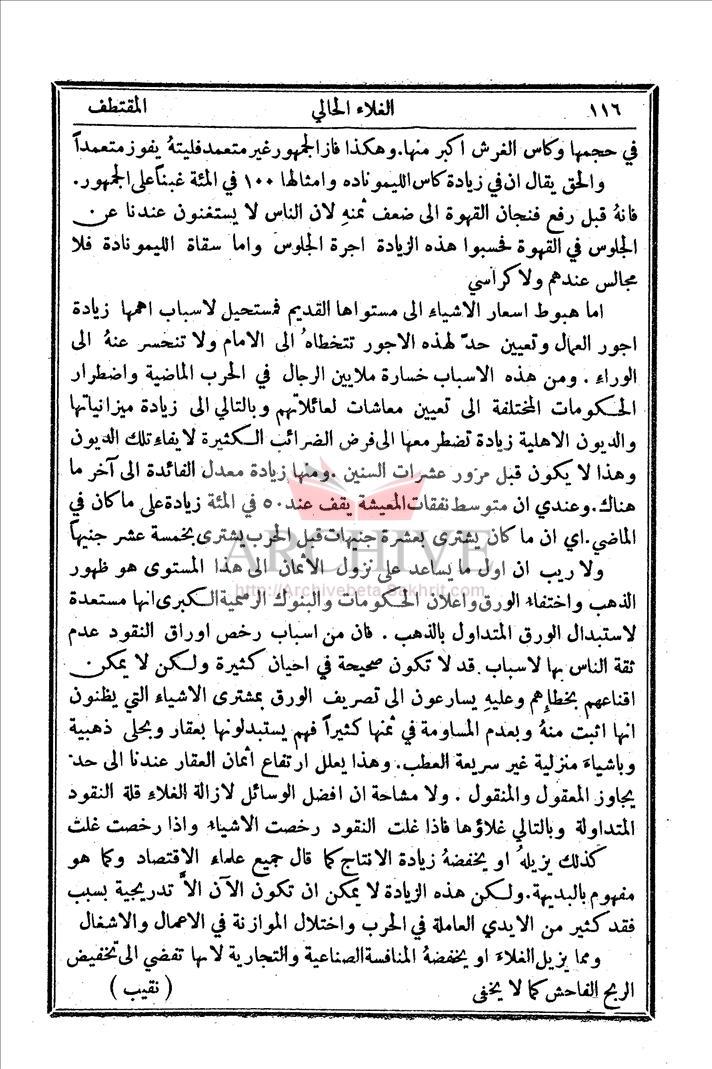 ١١٦ الغلاء الحالي المقتطف
في حجمها وكاس الفرش اكبر منها. وهكذا فاز الجمهور غير متعمد فليتهُ يفوز متعمداً
والحق يقال ان في زيادة كاس الليموناده وامثالها ١٠٠ في المئة غبناً على الجمهور.
فانهُ قبل رفع فنجان القهوة الى ضعف ثمنهِ لان الناس لا يستغنون عندنا عن
الجلوس في القهوة فحسبوا هذه الزيادة اجرة الجلوس واما سقاة الليمونادة فلا
مجالس عندهم ولا كراسي
اما هبوط اسعار الاشياء الى مستواها القديم فمستحيل لاسباب اهمها زيادة
اجور العمال وتعيين حدّ لهذه الاجور تتخطاهُ الى الامام ولا تنحسر عنهُ الى
الوراء. ومن هذه الاسباب خسارة ملايين الرجال في الحرب الماضية واضطرار
الحكومات المختلفة الى تعيين معاشات لعائلاتهم وبالتالي الى زيادة ميزانياتها
والديون الاهلية زيادة تضطر معها الى فرض الضرائب الكثيرة لايفاء تلك الديون
وهذا لا يكون قبل مرور عشرات السنين. ومنها زيادة معدل الفائدة الى آخر ما
هناك. وعندي ان متوسط نفقات المعيشة يقف عند ٥٠ في المئة زيادة على ما كان في
الماضي. اي ان ما كان يشترى بعشرة جنيهات قبل الحرب يشترى بخمسة عشر جنيهاً
ARCHIVE
ولا ريب ان اول ما يساعد على نزول الأثمان الى هذا المستوى هو ظهور
http://Archivebeta.Sakhrit.com
الذهب واختفاء الورق واعلان الحكومات والبنوك الرسمية الكبرى انها مستعدة
لاستبدال الورق المتداول بالذهب. فان من اسباب رخص اوراق النقود عدم
ثقة الناس بها لاسباب قد لا تكون صحيحة في احيان كثيرة ولكن لا يمكن
اقناعهم بخطإهم وعليهِ يسارعون الى تصريف الورق بمشترى الاشياء التي يظنون
انها اثبت منهُ وبعدم المساومة في ثمنها كثيراً فهم يستبدلونها بعقار وبحلى ذهبية
وباشياء منزلية غير سريعة العطب. وهذا يعلل ارتفاع أثمان العقار عندنا الى حدّ
يجاوز المعقول والمنقول. ولا مشاحة ان افضل الوسائل لازالة الغلاء قلة النقود
المتداولة وبالتالي غلاؤها فاذا غلت النقود رخصت الاشياء واذا رخصت غلت
كذلك يزيلهُ او يخفضهُ زيادة الانتاج كما قال جميع علماء الاقتصاد وكما هو
مفهوم بالبديهة. ولكن هذه الزيادة لا يمكن ان تكون الآن الاَّ تدريجية بسبب
فقد كثير من الايدي العاملة في الحرب واختلال الموازنة في الاعمال والاشغال
ومما يزيل الغلاء او يخفضهُ المنافسة الصناعية والتجارية لانها تفضي الى تخفيض
الربح الفاحش كما لا يخفى ( نقيب )